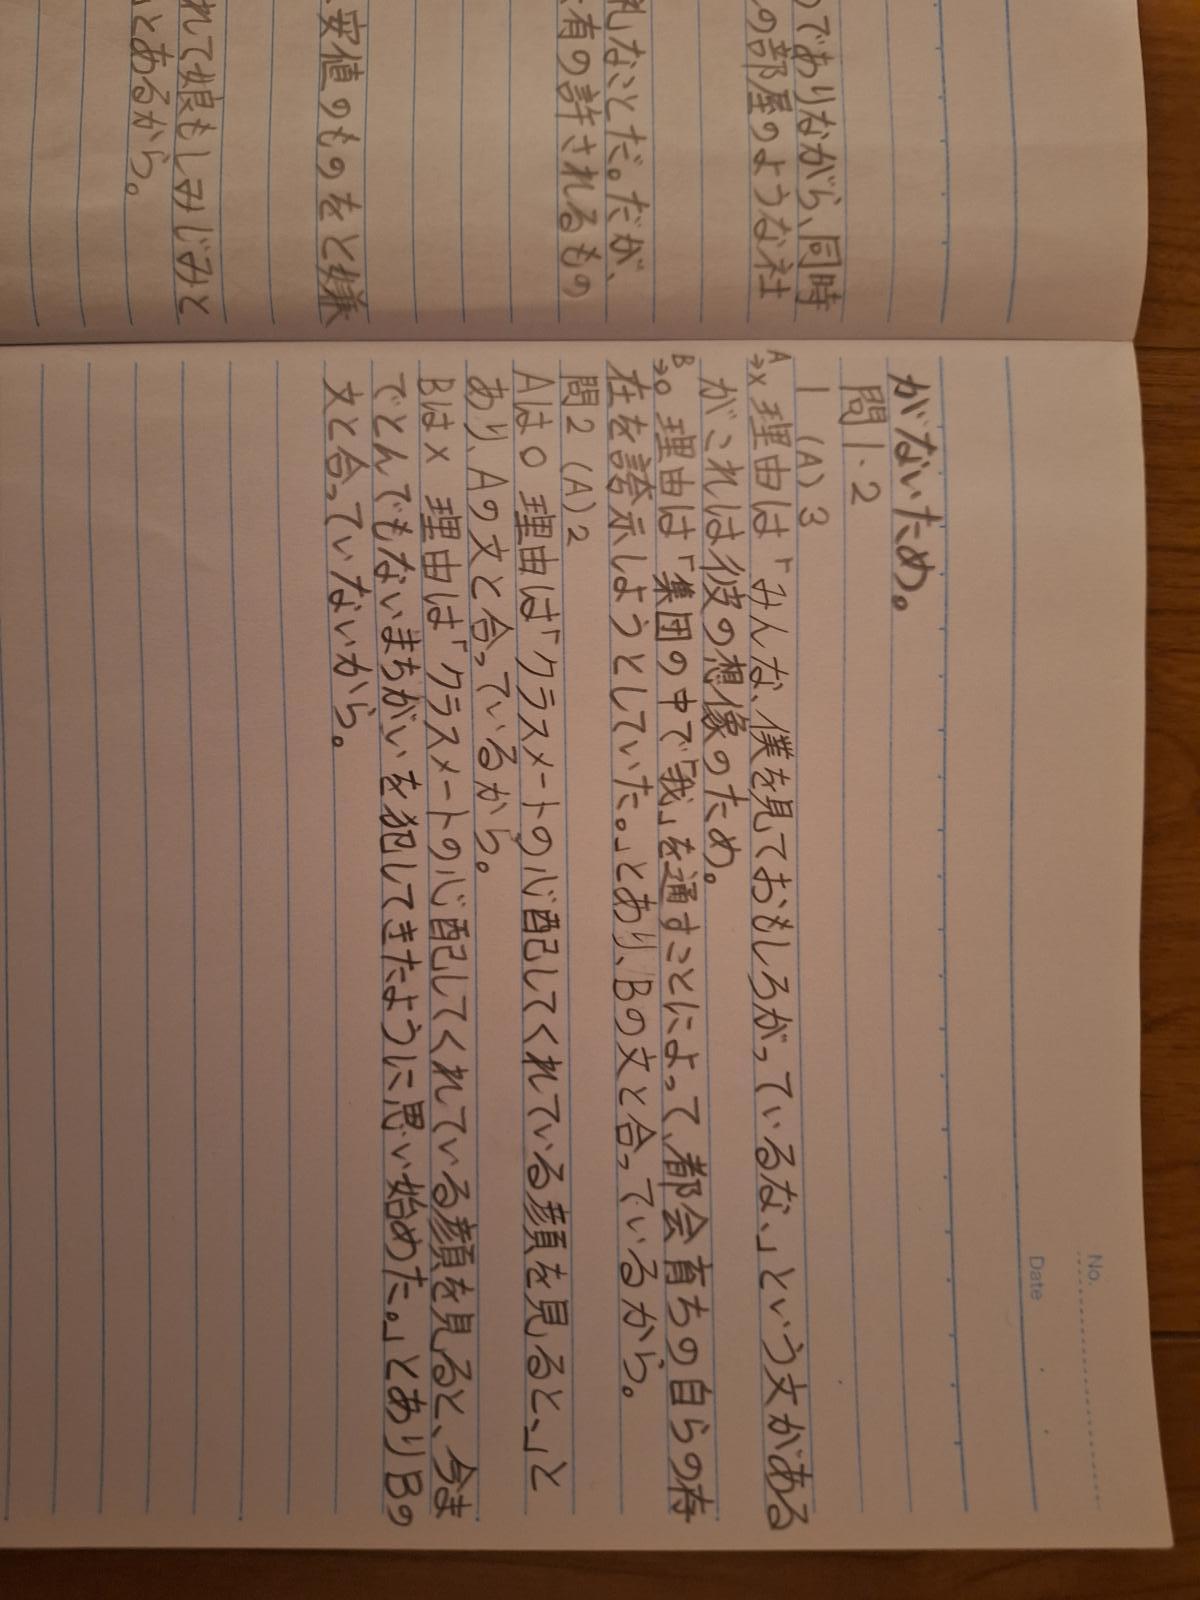 つでありながら、同時
の部屋のような社
礼なことだ。だが、
有の許されるもの
安値のものをと嫌
れて娘もしみじみと
とあるから。
No.
Date
がないため。
問1.2
1 (A) 3
A→× 理由は「みんな、僕を見ておもしろがっているな、」という文がある
がこれは彼の想像のため。
B→○ 理由は「集団の中で「我」を通すことによって、都会育ちの自らの存
在を誇示しようとしていた。」とあり、Bの文と合っているから。
問2 (A) 2
Aは○ 理由は「クラスメートの心配してくれている顔を見ると、」と
あり、Aの文と合っているから。
Bは× 理由は「クラスメートの心配してくれている顔を見ると、今ま
でとんでもないまちがいを犯してきたように思い始めた。」とありBの
文と合っていないから。